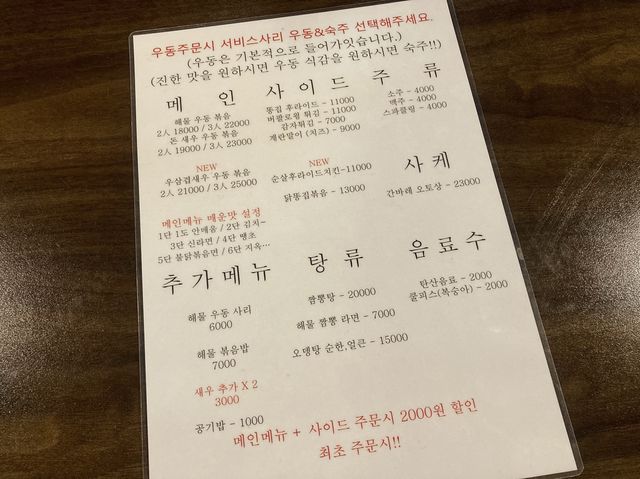 우동주문시 서비스사리 우동&숙주 선택해주세요.
(우동은 기본적으로 들어가있습니다.)
(진한 맛을 원하시면 우동 식감을 원하시면 숙주!!)
메 인
해물 우동 볶음
2人 18000 / 3人 22000
돈 새우 우동 볶음
2人 19000 / 3人 23000
NEW
우삼겹새우 우동 볶음
2人 21000 / 3人 25000
메인메뉴 매운맛 설정
1단 1도 안매움 / 2단 김치~
3단 신라면 / 4단 땡초
5단 불닭볶음면 / 6단 지옥…
사 이 드
똥집 후라이드 - 11000
버팔로윙 튀김 - 11000
감자튀김 - 7000
계란말이 (치즈) - 9000
NEW
순살후라이드치킨-11000
닭똥집볶음 - 13000
주 류
소주 - 4000
맥주 - 4000
스파클링 - 4000
사 케
간바레 오토상 - 23000
추 가 메 뉴
해물 우동 사리
6000
해물 볶음밥
7000
새우 추가 X 2
3000
공기밥 - 1000
탕 류
짬뽕탕 - 20000
해물 짬뽕 라면 - 7000
오뎅탕 순한,얼큰 - 15000
음 료 수
탄산음료 - 2000
쿨피스(복숭아) - 2000
메인메뉴 + 사이드 주문시 2000원 할인
최초 주문시!!